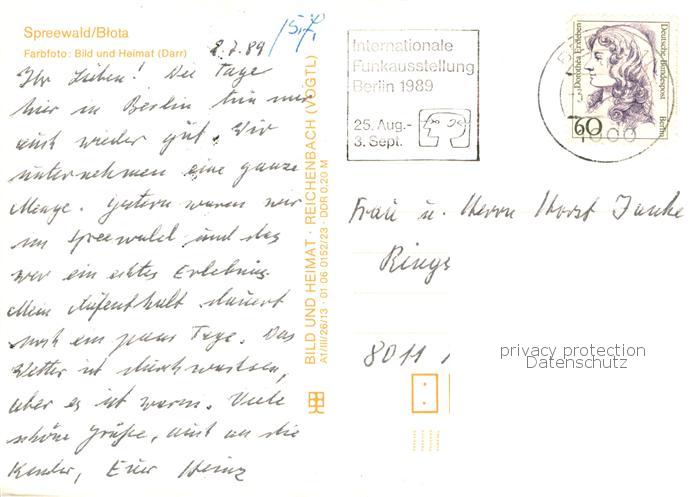 Spreewald/Błota
Farbfoto: Bild und Heimat (Darr)
2.7.89
Ihr Lieben! Die Tage
hier in Berlin tun mir
auch wieder gut. Wir
unternehmen eine ganze
Menge. Gestern waren wir
im Spreewald und das
war ein echtes Erlebnis.
Mein Aufenthalt dauert
noch ein paar Tage. Das
Wetter ist durchwachsen,
aber es ist warm. Viele
schöne Grüße, auch an die
Kinder, Euer Heinz
BILD UND HEIMAT · REICHENBACH (VOGTL)
A1/III/26/13 · 01 06 0152/23 · DDR 0,20 M
Internationale
Funkausstellung
Berlin 1989
25. Aug.-
3. Sept.
Dorothea Erxleben
Deutsche Bundespost
Berlin
60
Frau u. Herrn Horst
8011
privacy protection
Datenschutz